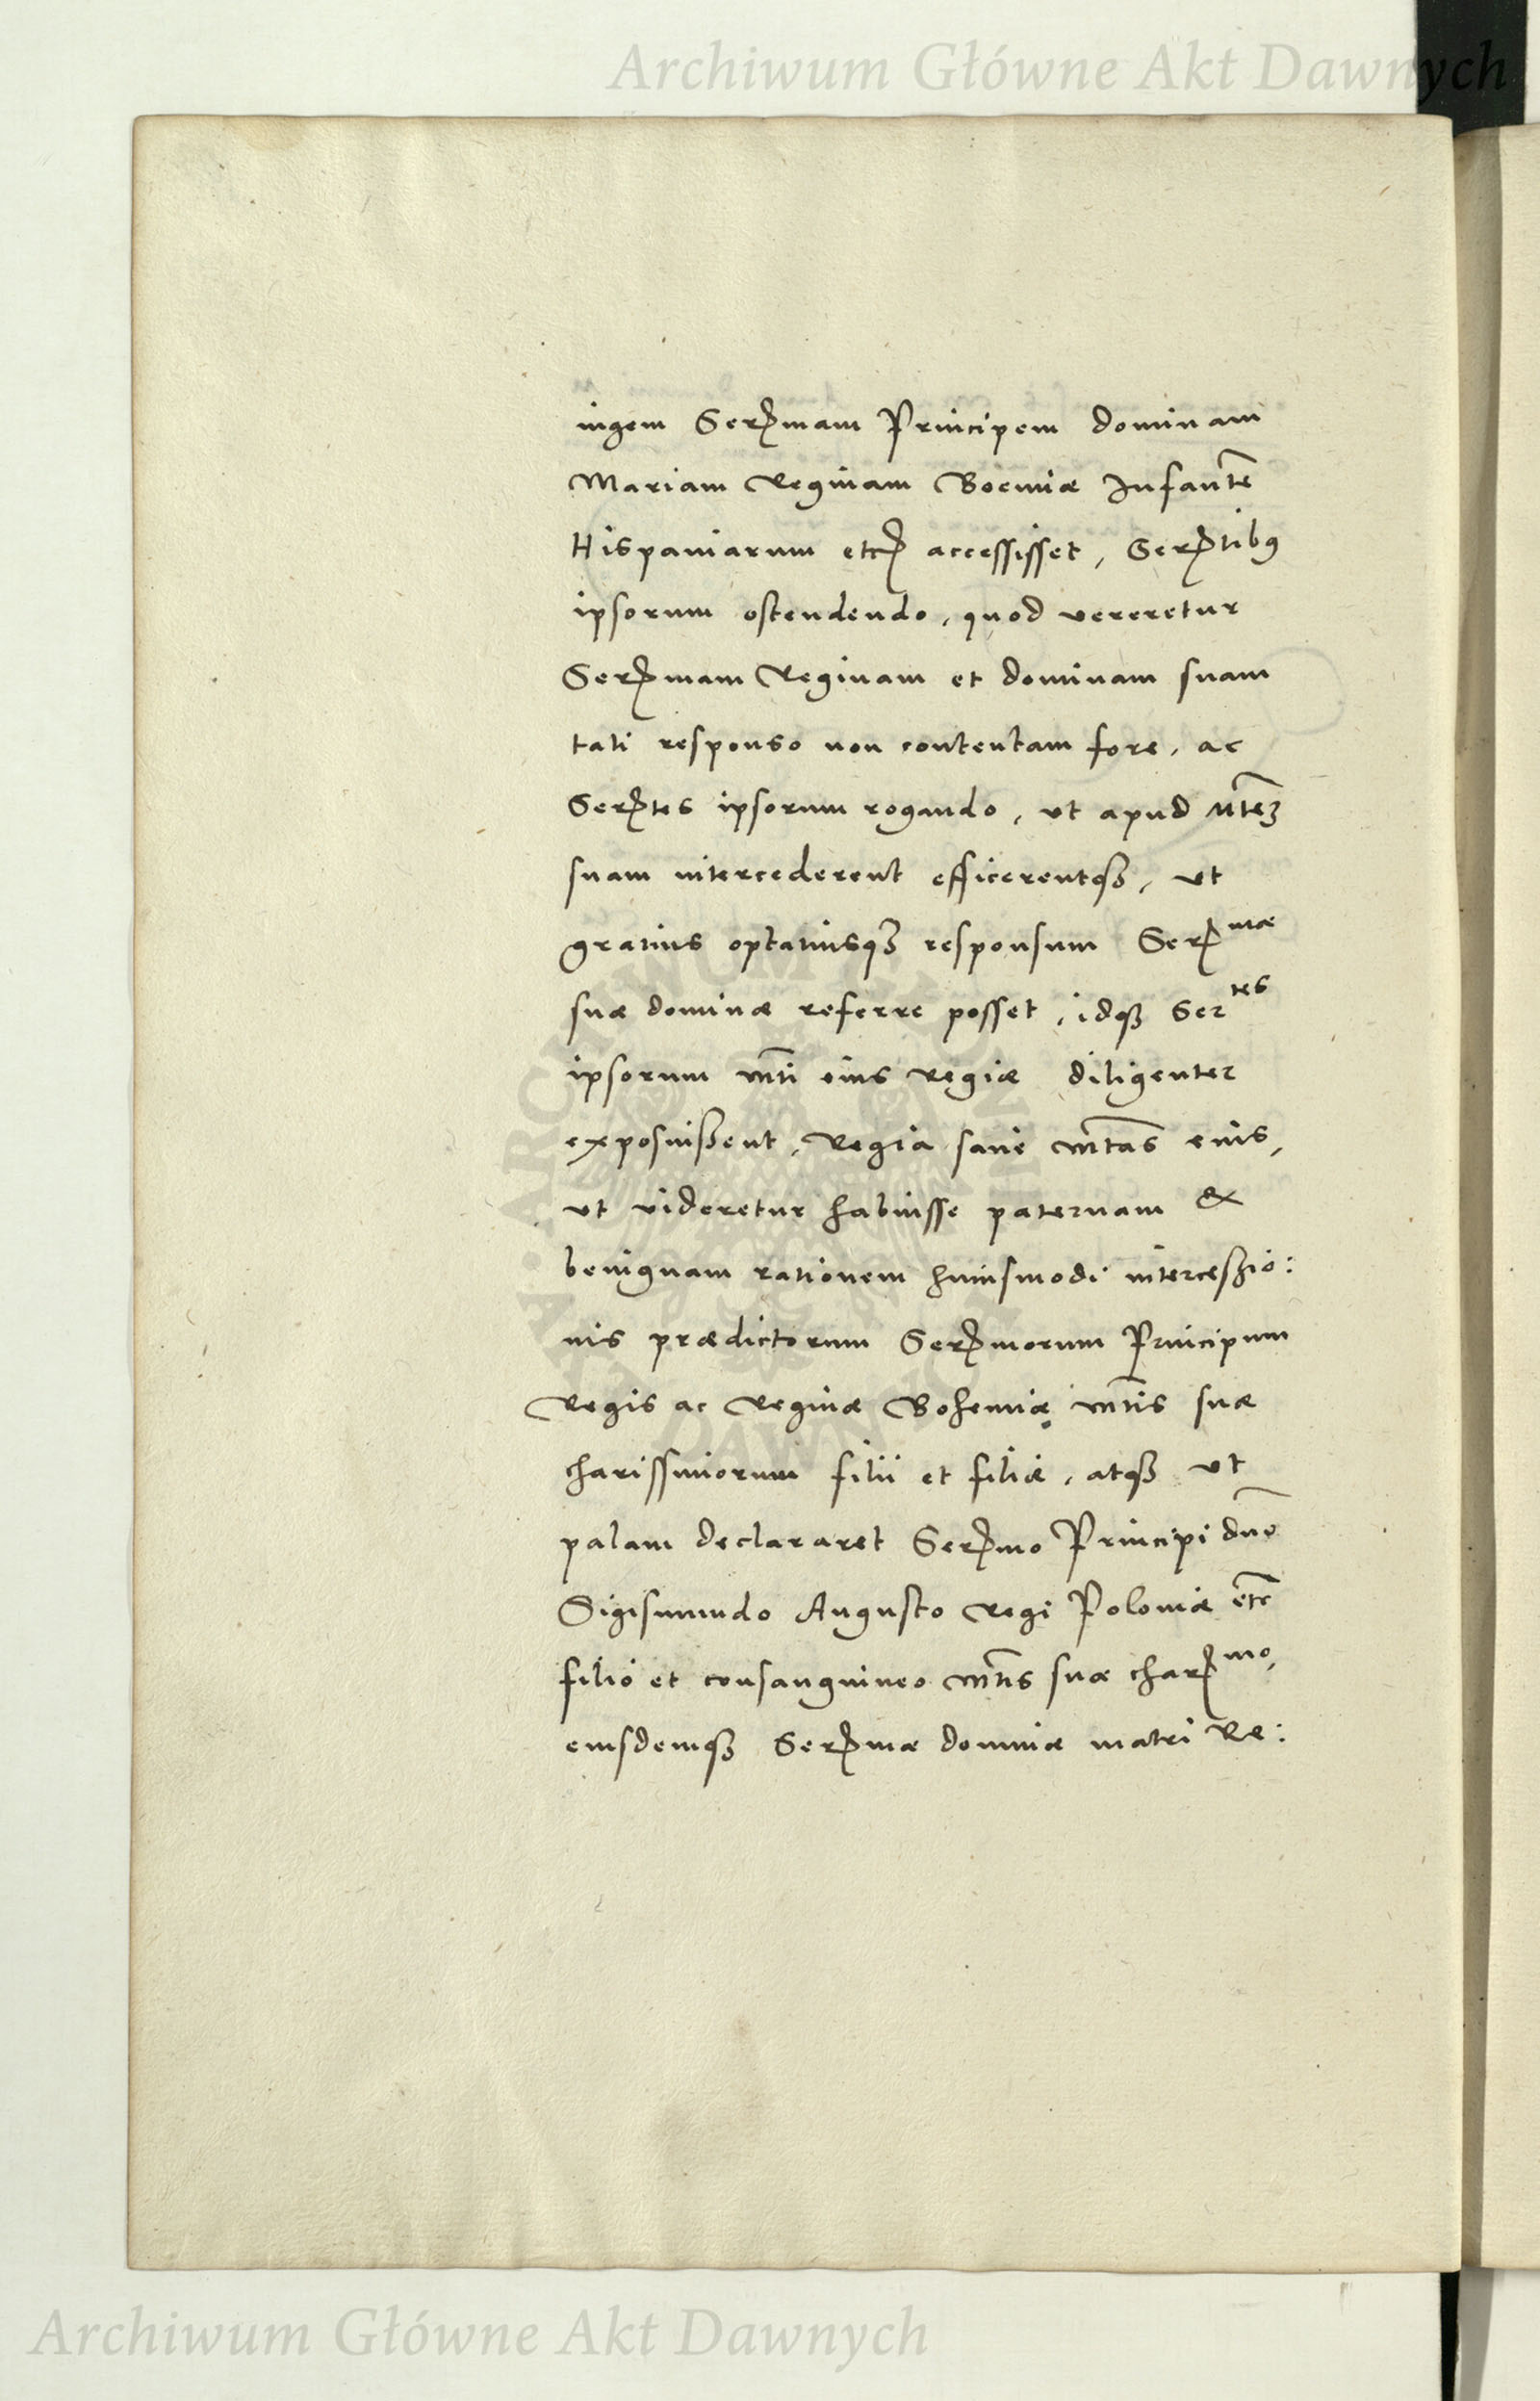 Archiwum Główne Akt Dawnych
iugem Serꝑmam Principem dominam
Mariam Reginam Boemiæ Infantē
Hispaniarum etcꝭ accessisset, Serꝑtibꝰ
ipsorum ostendendo, quod vereretur
Serꝑmam Reginam et dominam suam
tali responso non contentam fore, ac
Serꝑtes ipsorum rogando, ut apud Mt̄eꝫ
suam intercederent efficerentqꝫ, ut
gratius optatiusqꝫ responsum Serꝑmae
suæ dominæ referre posset, idqꝫ Sertes
ipsorum Mt̄i eius Regiæ diligenter
exposuißent, Regia sane Mt̄as eius,
ut videretur habuisse paternam &
benignam rationem huiusmodi interceßio:
nis prædictorum Serꝑmorum Principum
Regis ac Reginæ Bohemię Mt̄is suæ
charissimorum filii et filiæ, atqꝫ ut
palam declararet Serꝑmo Principi dn̄o
Sigismundo Augusto Regi Poloniæ et̄c
filio et consanguineo Mt̄is suæ charꝑmo,
eiusdemqꝫ Serꝑmæ dominæ matri Re:
Archiwum Główne Akt Dawnych